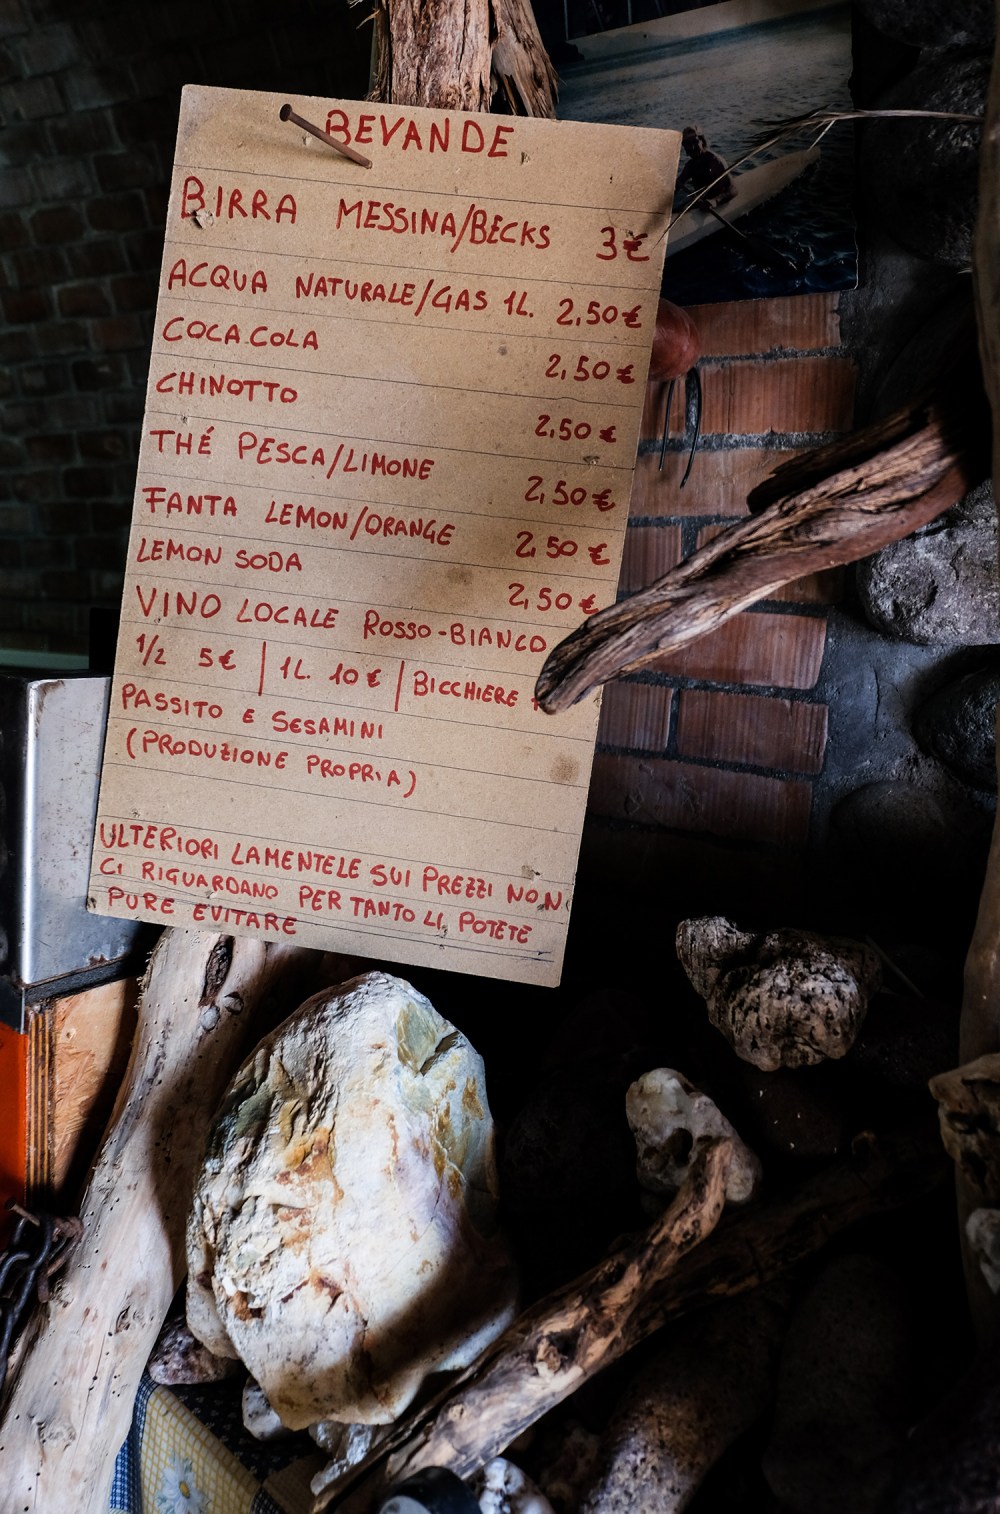 BEVANDE
BIRRA MESSINA/BECKS 3€
ACQUA NATURALE/GAS 1L. 2,50€
COCA.COLA 2,50€
CHINOTTO 2,50€
THÉ PESCA/LIMONE 2,50€
FANTA LEMON/ORANGE 2,50€
LEMON SODA 2,50€
VINO LOCALE ROSSO-BIANCO
1/2 5€ | 1L. 10€ | BICCHIERE
PASSITO E SESAMINI
(PRODUZIONE PROPRIA)
ULTERIORI LAMENTELE SUI PREZZI NON
CI RIGUARDANO PER TANTO LI POTETE
PURE EVITARE